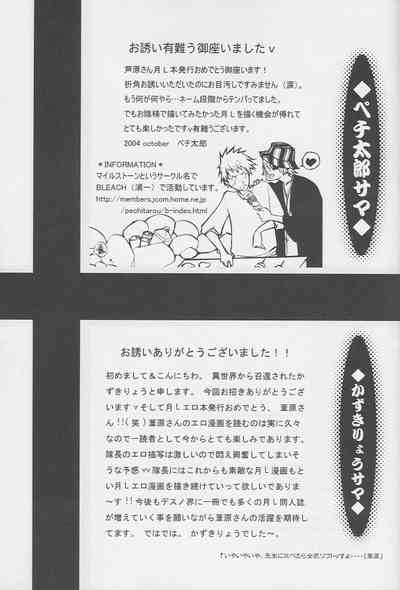 お誘い有難う御座いましたv
芦原さん月L本発行おめでとう御座います!
折角お誘いいただいたのにお目汚しですみません(涙)。
もう何が何やら…ネーム段階からテンパってました。
でもお陰様で描いてみたかった月Lを描く機会が得れて
とても楽しかったですv有難うございます。
2004 october ペチ太郎
*INFORMATION*
マイルストーンというサークル名で
BLEACH(浦一)で活動しています。
http://members.jcom.home.ne.jp
/pechitarou/b-index.html
◆ペチ太郎サマ◆
お誘いありがとうございました!!
初めまして&こんにちわ。異世界から召還されたか
ずきりょうと申します。今回お招きありがとうござ
いますvそして月Lエロ本発行おめでとう、葦原さ
ん!!(笑)葦原さんのエロ漫画を読むのは実に久々
なので一読者として今からとても楽しみであります。
隊長のエロ描写は激しいので悶え興奮してしまいそ
うな予感vv隊長にはこれからも素敵な月L漫画もと
い月Lエロ漫画を描き続けていって欲しいでありま
す~す!!今後もデスノ界に一冊でも多くの月L同人誌
が増えていく事を願いながら葦原さんの活躍を期待し
てます。ではでは。かずきりょうでした~。
◆かずきりょうサマ◆